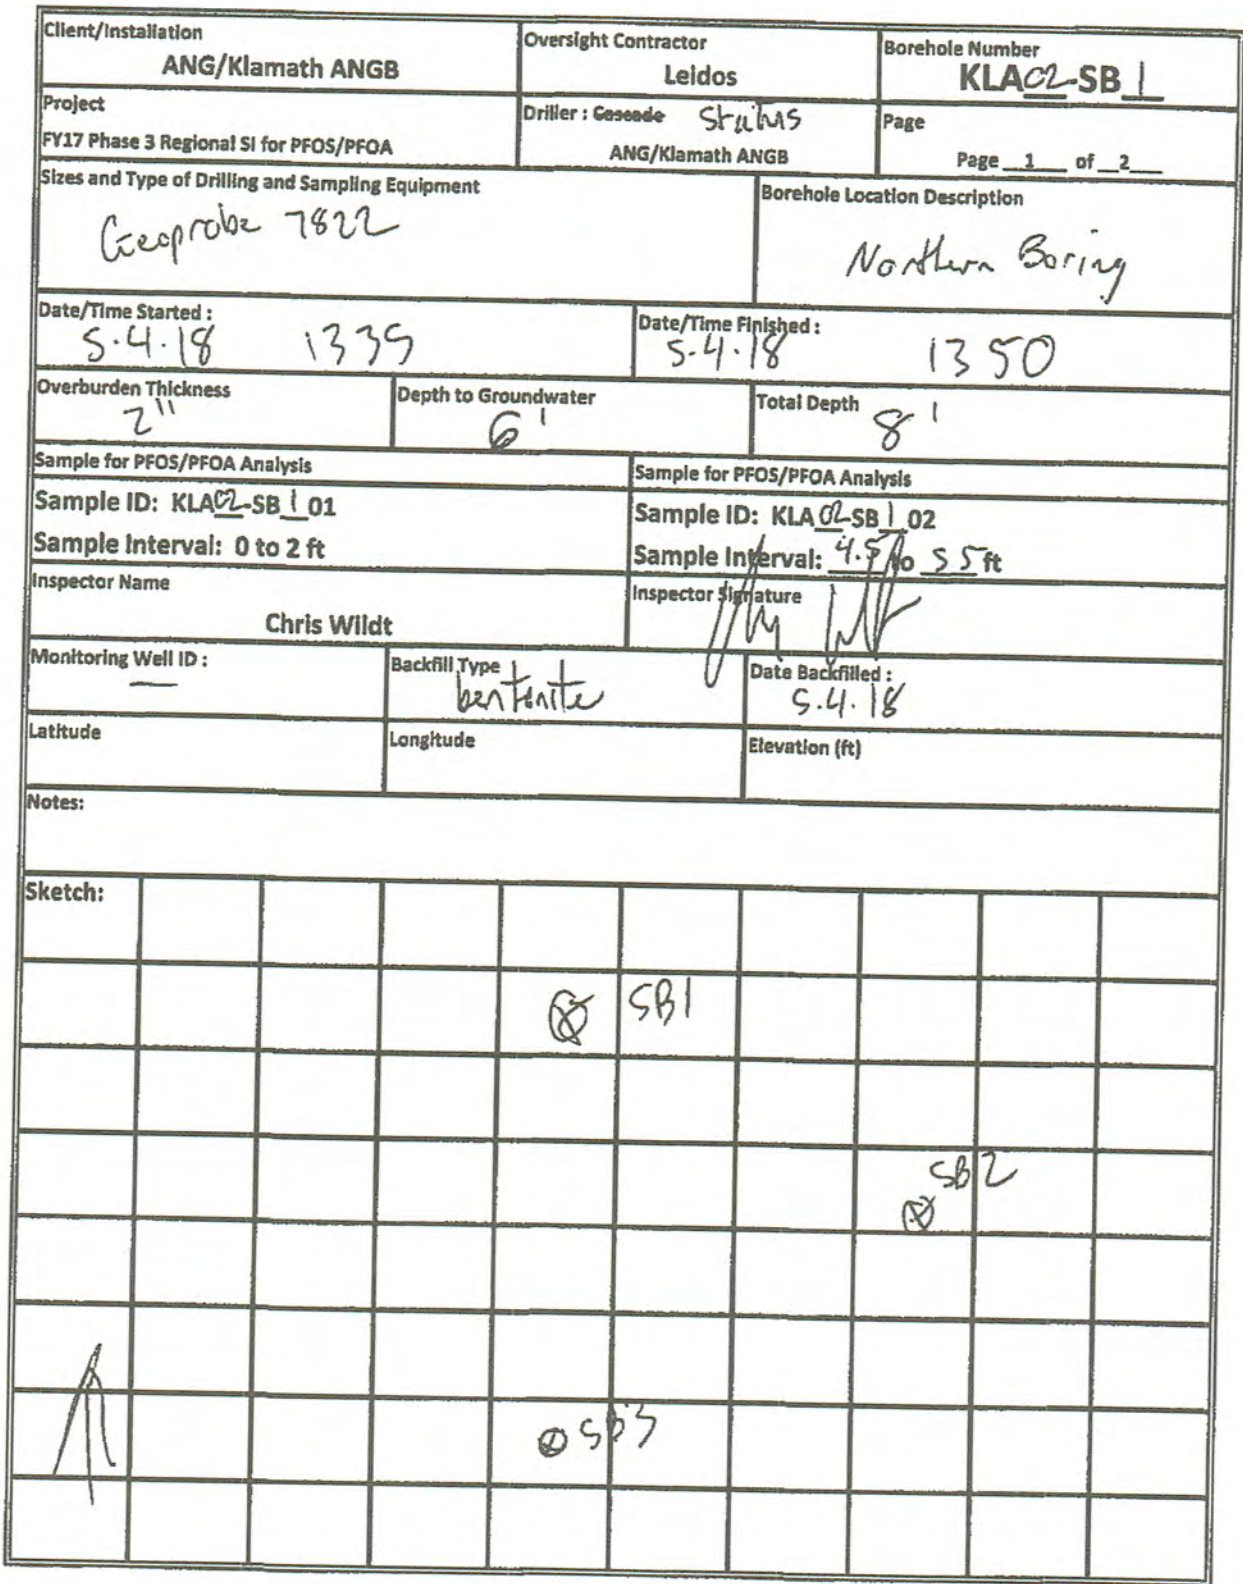 Client/Installation
ANG/Klamath ANGB
Oversight Contractor
Leidos
Borehole Number
KLA02-SB 1
Project
FY17 Phase 3 Regional SI for PFOS/PFOA
Driller : Cascade Stratus
ANG/Klamath ANGB
Page
Page 1 of 2
Sizes and Type of Drilling and Sampling Equipment
Geoprobe 7822
Borehole Location Description
Northern Boring
Date/Time Started :
5.4.18 1335
Date/Time Finished :
5.4.18 1350
Overburden Thickness
2"
Depth to Groundwater
6'
Total Depth
8'
Sample for PFOS/PFOA Analysis
Sample ID: KLA02-SB 1 01
Sample Interval: 0 to 2 ft
Sample for PFOS/PFOA Analysis
Sample ID: KLA02-SB 1 02
Sample Interval: 4.5 to 5.5 ft
Inspector Name
Chris Wildt
Inspector Signature
Monitoring Well ID :
—
Backfill Type
bentonite
Date Backfilled :
5.4.18
Latitude
Longitude
Elevation (ft)
Notes:
Sketch:
SB1
SB2
SB3